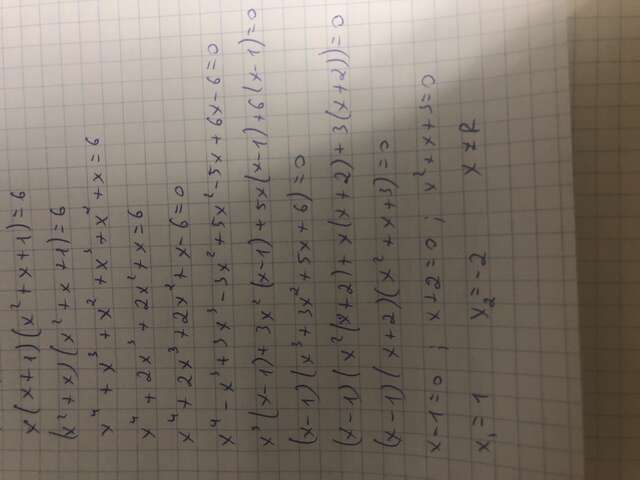 x(x+1)(x²+x+1)=6
(x²+x)(x²+x+1)=6
x⁴+x³+x²+x³+x²+x=6
x⁴+2x³+2x²+x=6
x⁴+2x³+2x²+x-6=0
x⁴-x³+3x³-3x²+5x²-5x+6x-6=0
x³(x-1)+3x²(x-1)+5x(x-1)+6(x-1)=0
(x-1)(x³+3x²+5x+6)=0
(x-1)(x²(x+2)+x(x+2)+3(x+2))=0
(x-1)(x+2)(x²+x+3)=0
x-1=0 ; x+2=0 ; x²+x+3=0
x₁=1 x₂=-2 x∉R